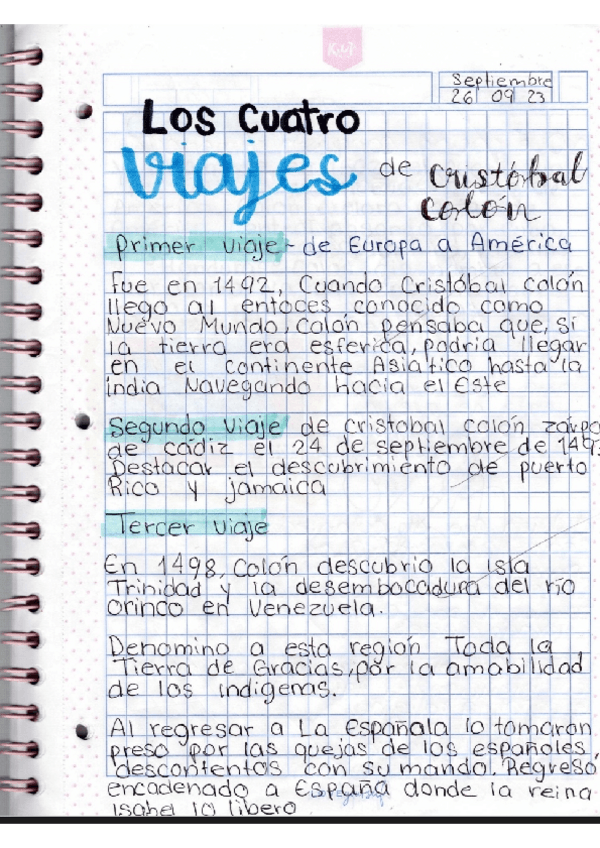 Septiembre
26 09 23
Los Cuatro
viajes de Cristóbal
Colón
Primer viaje - de Europa a América
Fue en 1492, Cuando Cristóbal colón
llego al entoces conocido como
Nuevo Mundo, Colón pensaba que, si
la tierra era esferica, podria llegar
en el continente Asiático hasta la
india Navegando hacia el Este
Segundo viaje de cristobal colón zarpo
de cádiz el 24 de septiembre de 149
Destacar el descubrimiento de puerto
Rico y jamaica
Tercer viaje
En 1498, Colón descubrio la isla
Trinidad y la desembocadura del río
orinco en Venezuela.
Denomino a esta región Toda la
Tierra de Gracias, por la amabilidad
de los indigenas.
Al regresar a La Española lo tomaron
preso por las quejas de los españoles,
descontentos con su mando. Regresó
encadenado a España donde la reina
isabel lo libero